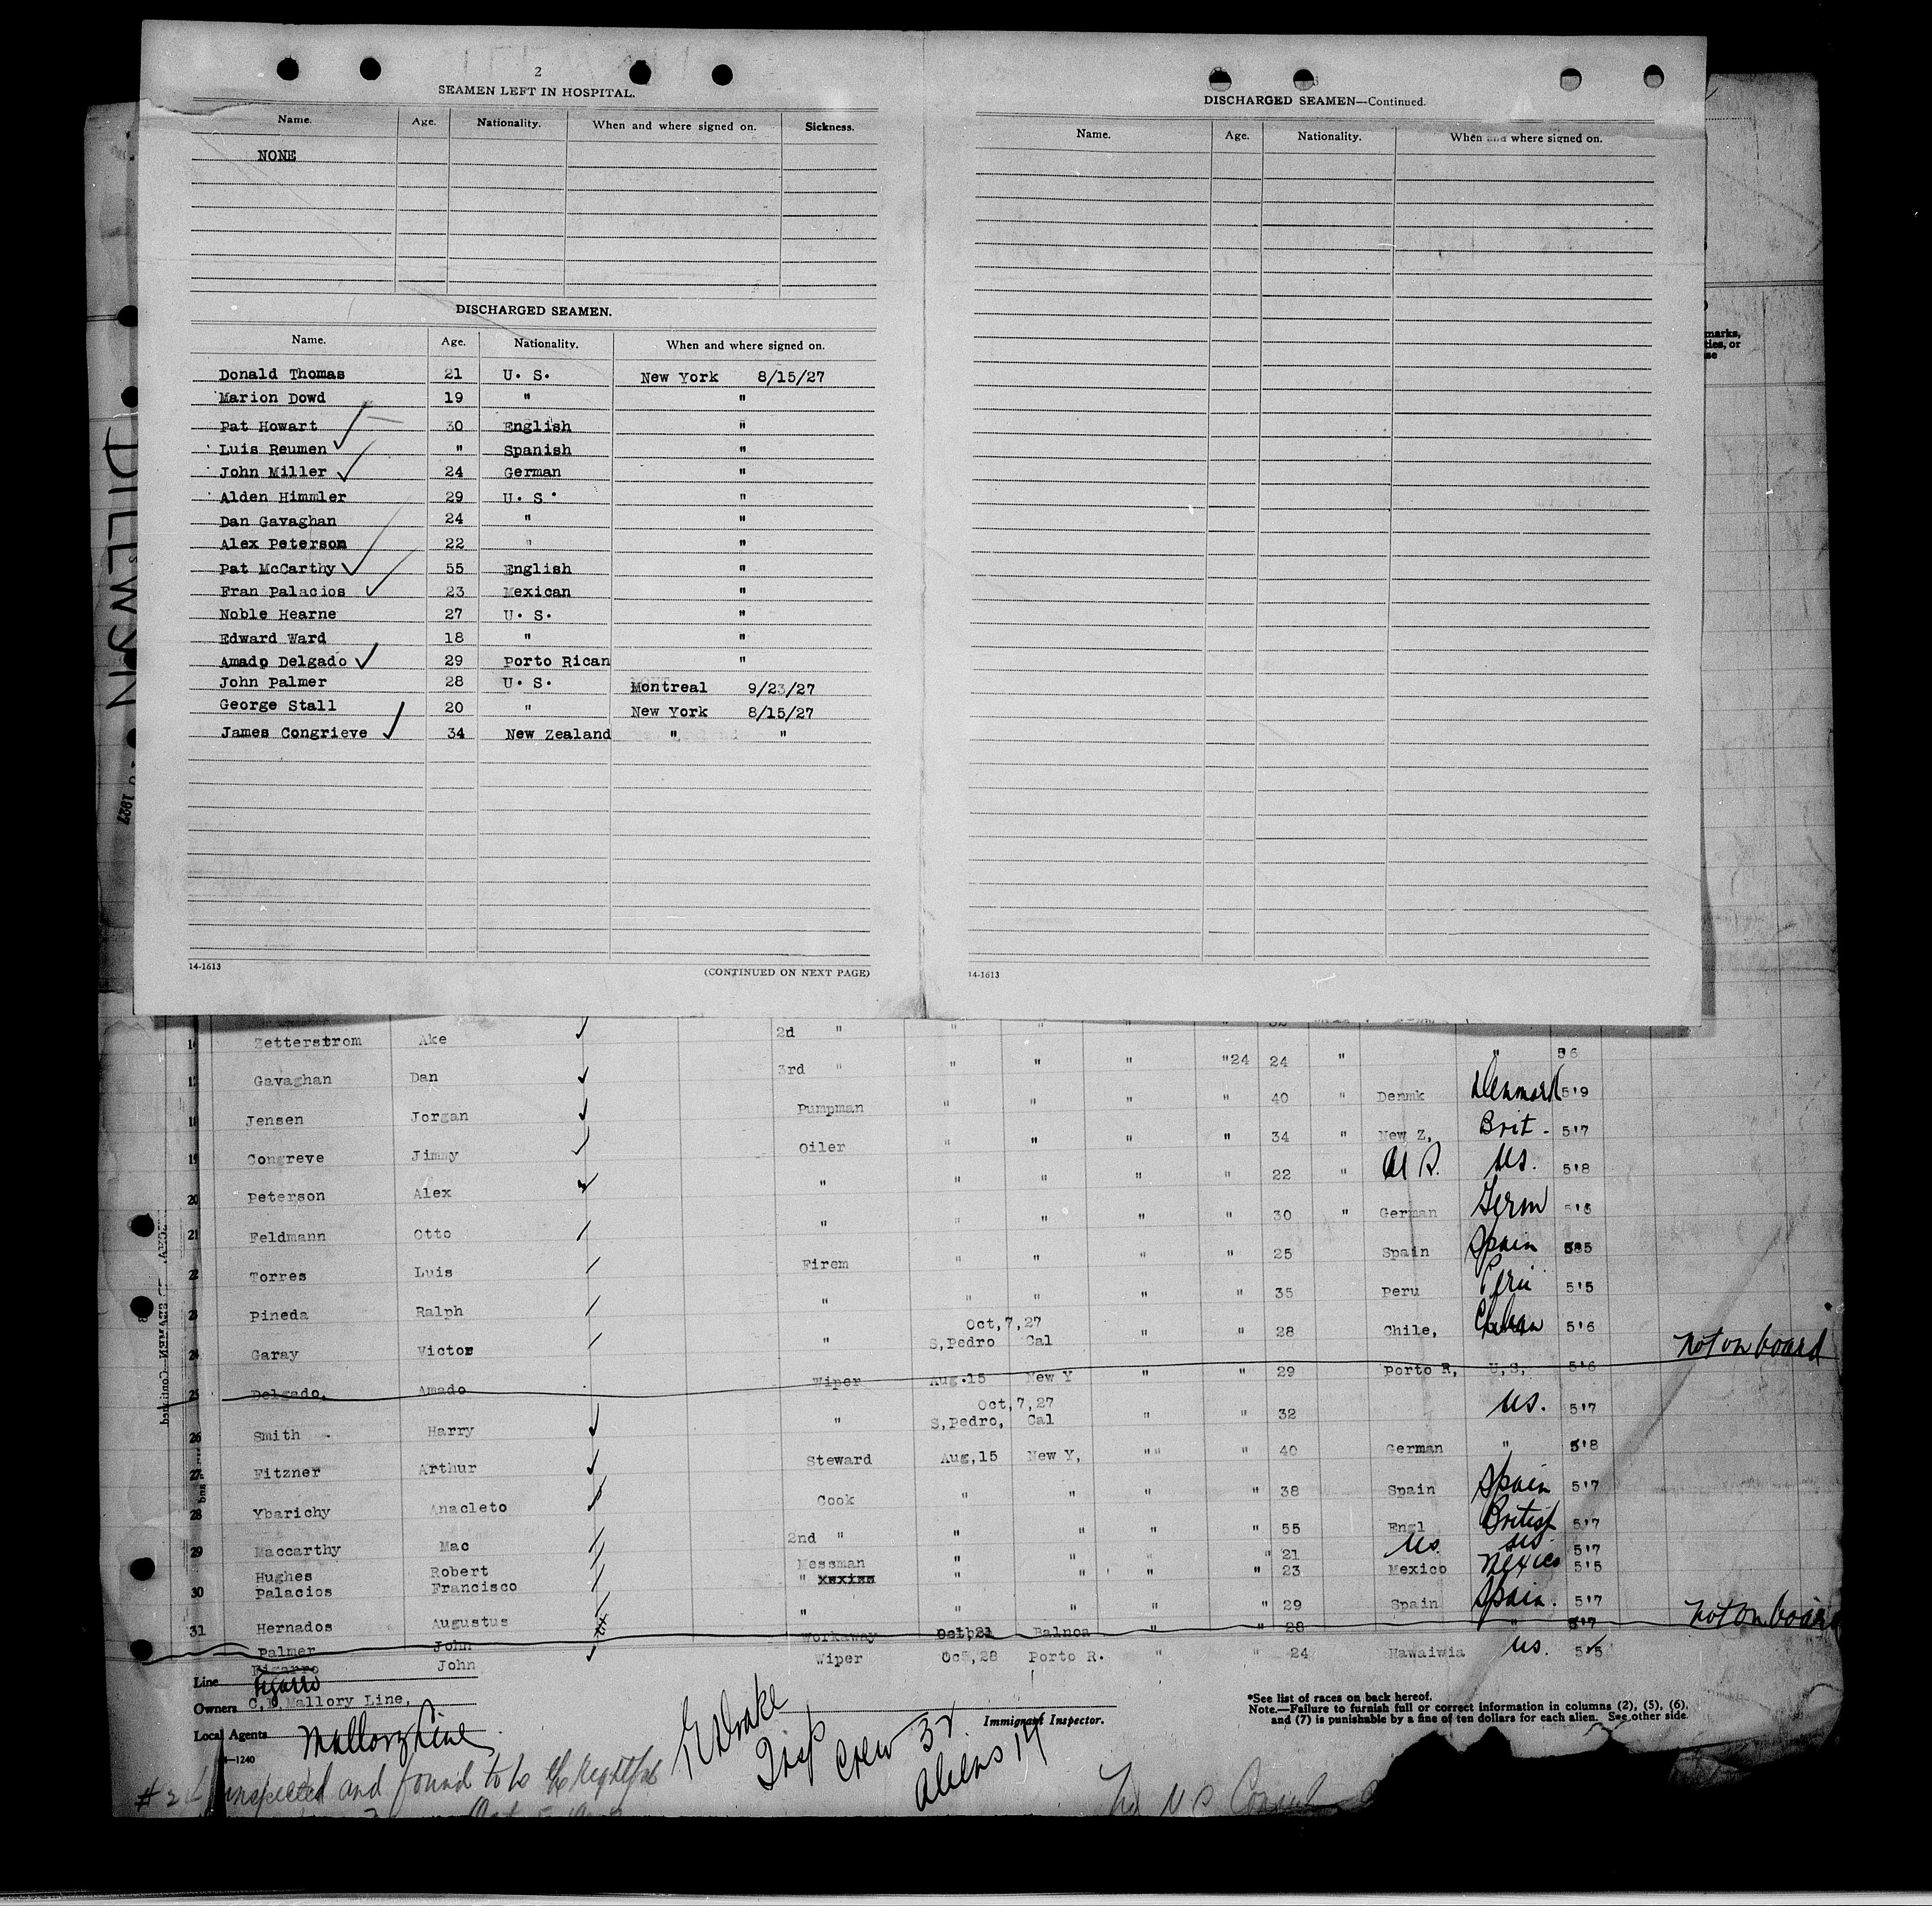 2
SEAMEN LEFT IN HOSPITAL.
Name. Age. Nationality. When and where signed on. Sickness.
NONE
DISCHARGED SEAMEN.
Name. Age. Nationality. When and where signed on.
Donald Thomas 21 U. S. New York 8/15/27
Marion Dowd 19 " "
Pat Howart 30 English "
Luis Reumen " Spanish "
John Miller 24 German "
Alden Himmler 29 U. S. "
Dan Gavaghan 24 " "
Alex Peterson 22 " "
Pat McCarthy 55 English "
Fran Palacios 23 Mexican "
Noble Hearne 27 U. S. "
Edward Ward 18 " "
Amado Delgado 29 Porto Rican "
John Palmer 28 U. S. Montreal 9/23/27
George Stall 20 " New York 8/15/27
James Congrieve 34 New Zealand " "
14-1613 (CONTINUED ON NEXT PAGE)
DISCHARGED SEAMEN—Continued.
Name. Age. Nationality. When and where signed on.
14-1613
marks,
ties, or
se
DILLWYN
1927
Zetterstrom Ake 2nd " " " " "
Gavaghan Dan 3rd " " " " "24 24 " " 5'6
18 Jensen Jorgan Pumpman " " " " 40 " Denmk Denmark 5'9
19 Congreve Jimmy Oiler " " " " 34 " New Z, Brit. 5'7
20 Peterson Alex " " " " " 22 " U S. US. 5'8
21 Feldmann Otto " " " " " 30 " German Germ
22 Torres Luis Firem " " " " 25 Spain Spain
23 Pineda Ralph " " " " " 35 Peru Peru 5'5
24 Garay Victor " Oct,7,27 S,Pedro Cal " " 28 Chile, 5'6
25 Delgado, Amado Wiper Aug.15 New Y " " 29 Porto R, U,S, 5'6 not on board
26 Smith Harry " Oct,7,27 S,Pedro, Cal " " 32 US. 5'7
27 Fitzner Arthur Steward Aug,15 New Y, "" " 40 German " 5'8
28 Ybarichy Anacleto Cook " " " " 38 Spain Spain 5'7
29 Maccarthy Mac 2nd " " " " " 55 Engl British 5'7
Hughes Robert Messman " " " " 21 US US 5'7
30 Palacios Francisco " " " " " 23 Mexico Mexico 5'5
31 Hernados Augustus " " " " 29 Spain Spain. 5'7
Palmer John Workaway Oct,21 Balboa " " 28 " 5'7 not on board
John Wiper Oct,28 Porto R. " " 24 Hawaiwia US. 5'5
Line
Owners C.D.Mallory Line,
Local Agents Mallory Line
14—1240
Insp
Crew 32
Aliens 14
Immigrant Inspector.
*See list of races on back hereof.
Note.—Failure to furnish full or correct information in columns (2), (5), (6),
and (7) is punishable by a fine of ten dollars for each alien. See other side.
inspected and found to be the rightful
U S Consul